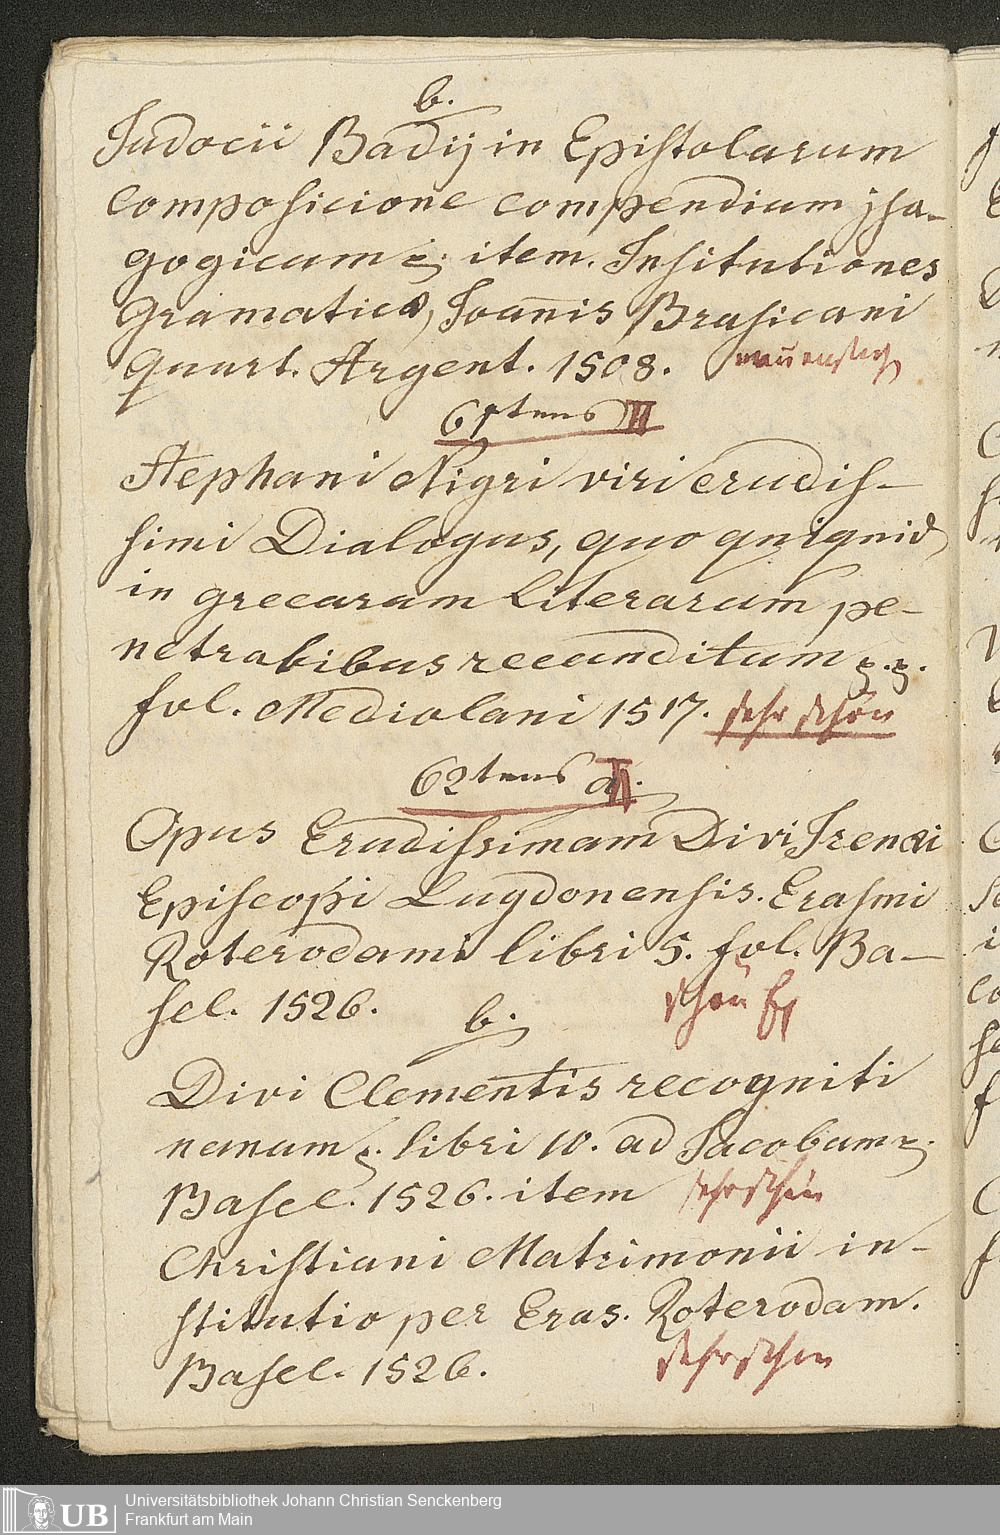 b.
Judocii Badij in Epistolarum
composicione compendium jsa-
gogicum &; item. Institutiones
Gramaticæ, Joanis Brasicani
Quart. Argent. 1508.
61tens II
Stephani Nigri viri erudis-
simi Dialogus, quo quiquid
in grecarum Literarum pe-
netrabibus recunditum &.&.
fol. Mediolani 1517. sehr schön
62tens a. II
Opus Erudissimam Divi Irenæi
Episcopi Lugdonensis. Erasmi
Roterodami libri 5. fol. Ba-
sel. 1526. schön
b.
Divi Clementis recogniti
nanum &. libri 10. ad Jacobum &.
Basel. 1526. item sehr schön
Christiani Matrimonii in-
stitutio per Eras. Roterodam.
Basel. 1526. sehr schön
UB
Universitätsbibliothek Johann Christian Senckenberg
Frankfurt am Main